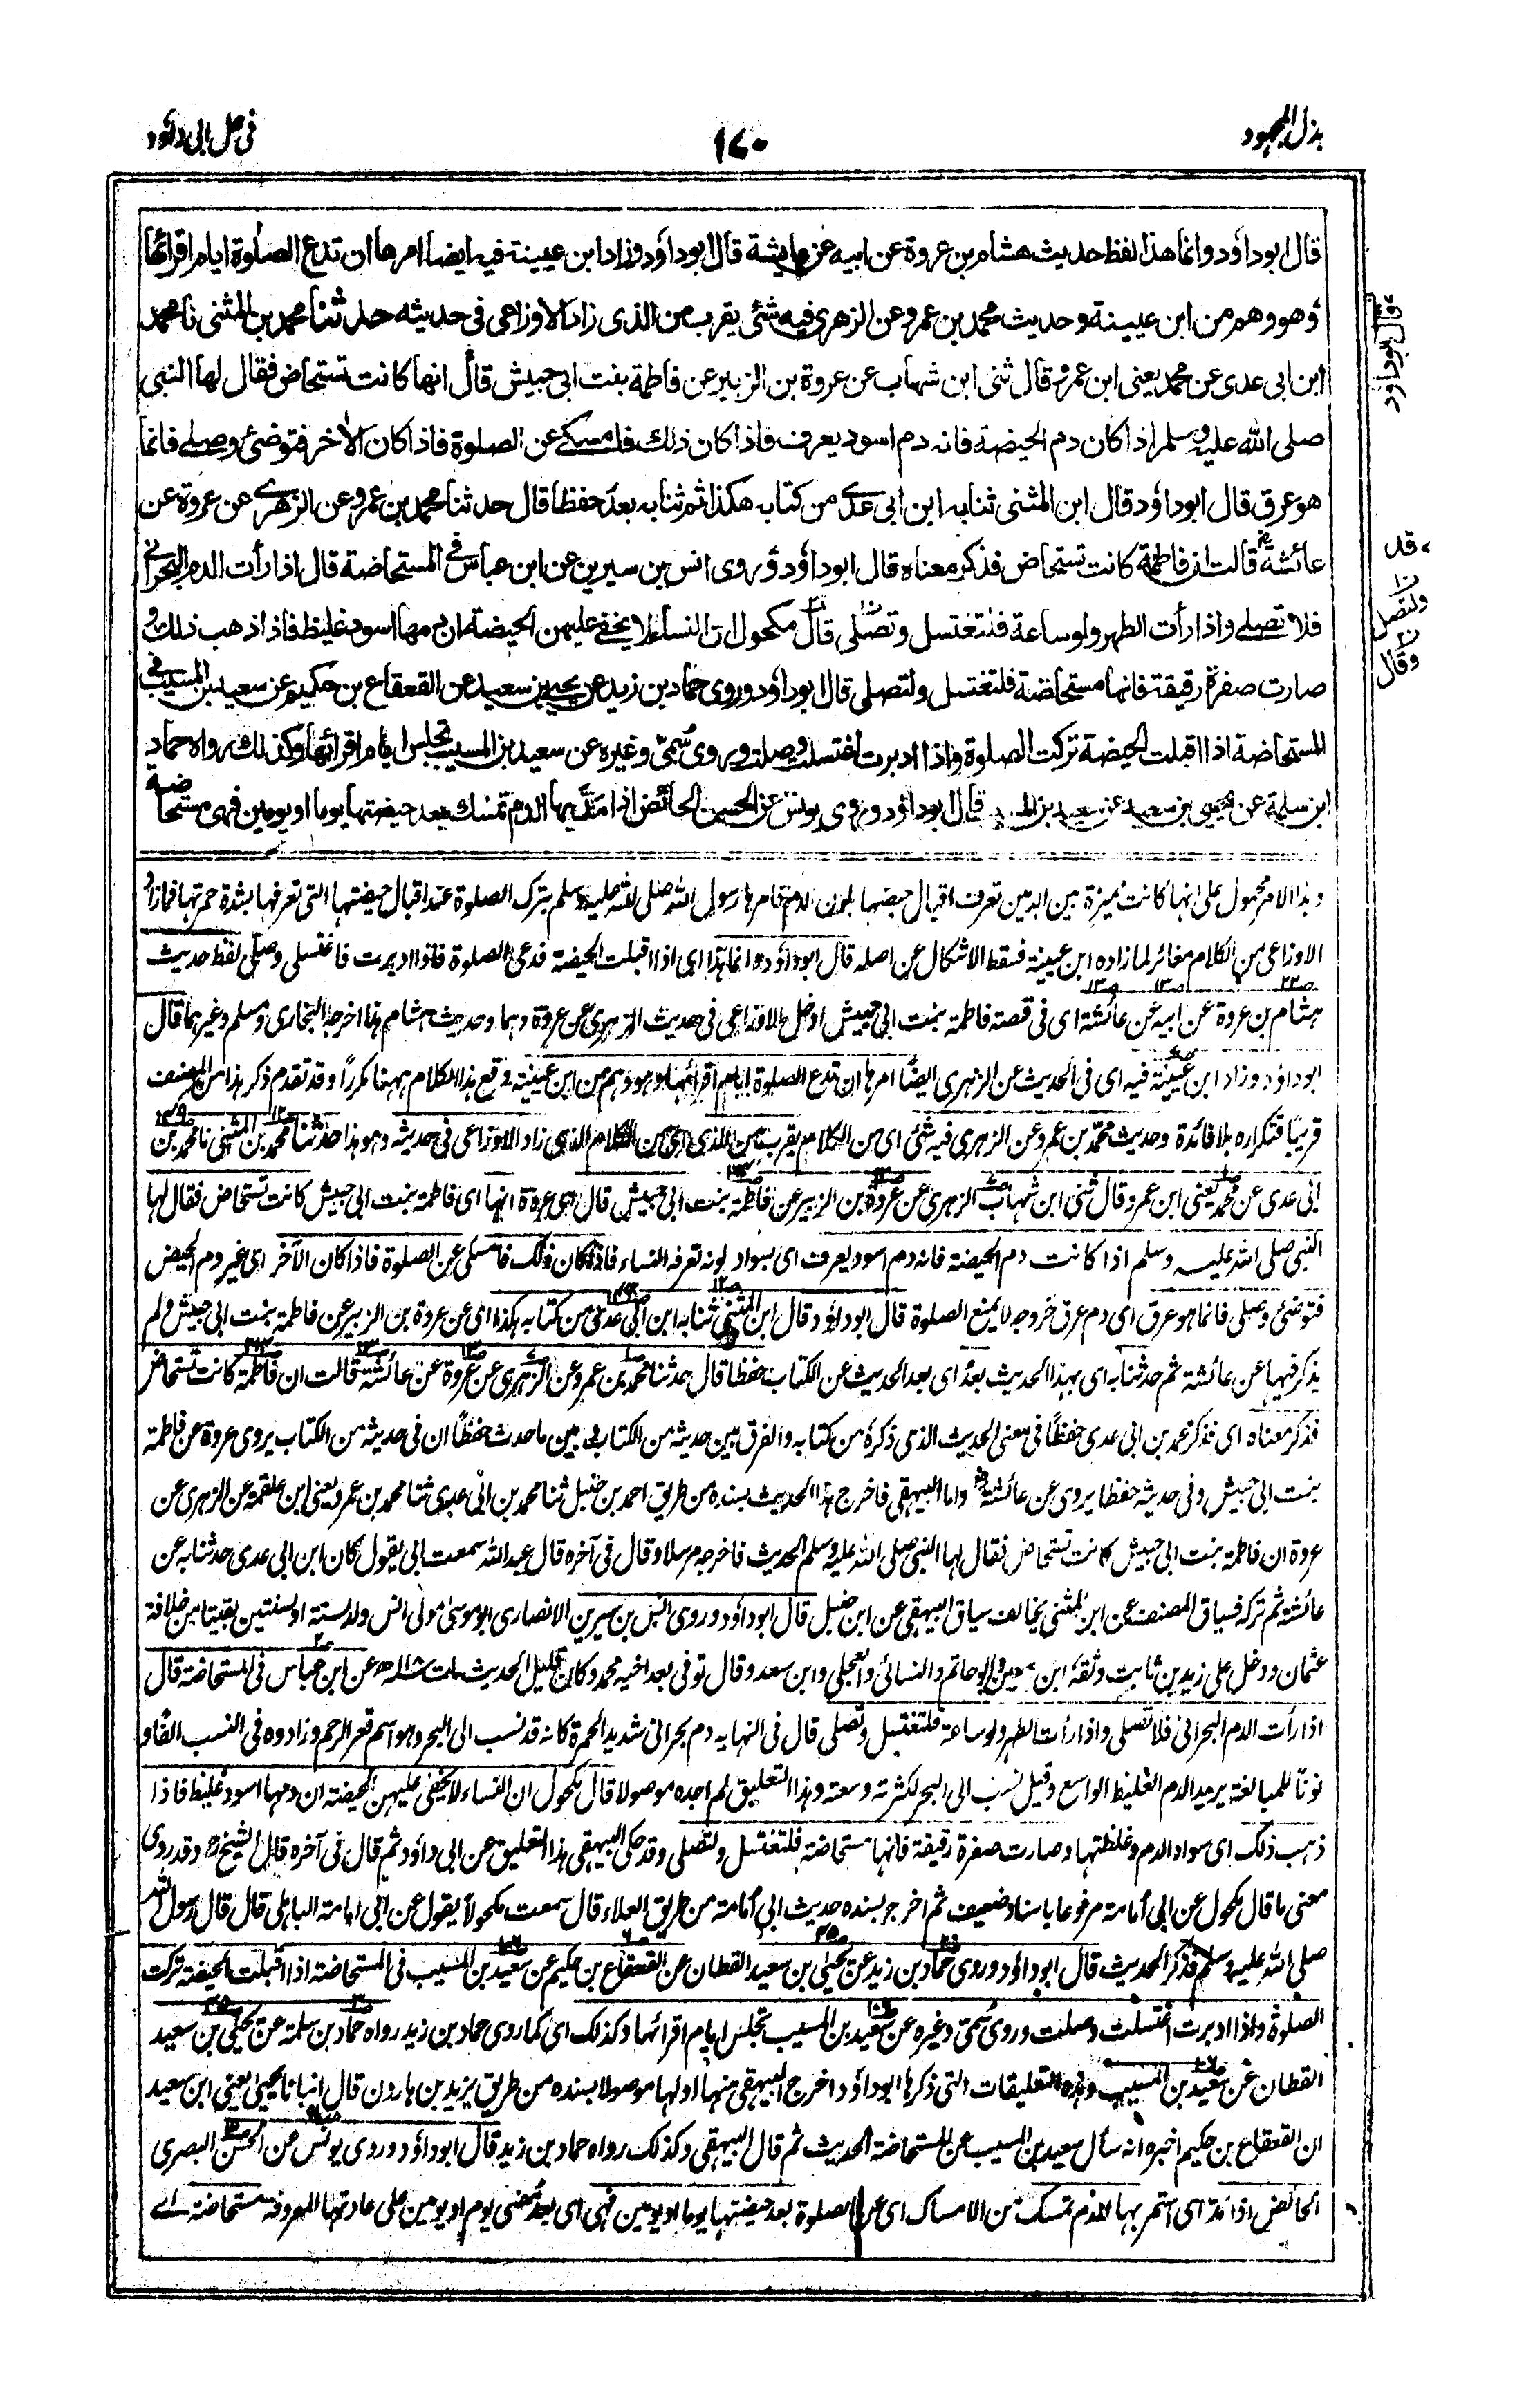 بذل المجهود
١٧٠
فی حل ابی داؤد
قال ابو داؤد وانما هذا لفظ حديث هشام بن عروة عن ابيه عن عايشة قال ابو داؤد وزاد ابن عيينة فيه ايضا امرها ان تدع الصلوة ايام اقرائها
وهو وهم من ابن عيينة وحديث محمد بن عمرو عن الزهری فيه شئ يقرب من الذی زاد الاوزاعی فی حديثه حدثنا محمد بن المثنی نا محمد
ابن ابی عدی عن محمد يعنی ابن عمرو قال ثنی ابن شهاب عن عروة بن الزبير عن فاطمة بنت ابی حبيش قال انها كانت تستحاض فقال لها النبی
صلی الله عليه وسلم اذا كان دم الحيضة فانه دم اسود يعرف فاذا كان ذلك فامسكی عن الصلوة فاذا كان الاخر فتوضئ وصلی فانما
هو عرق قال ابو داؤد قال ابن المثنی ثنا به ابن ابی عدی من كتابه هكذا ثم ثنا به بعد حفظا قال حدثنا محمد بن عمرو عن الزهری عن عروة عن
عائشة قالت ان فاطمة كانت تستحاض فذكر معناه قال ابو داؤد وروی انس بن سيرين عن ابن عباس فی المستحاضة قال اذا رأت الدم البحرانی
فلا تصلی واذا رأت الطهر ولو ساعة فلتغتسل وتصلی قال مكحول ان النساء لا يخفی عليهن الحيضة ان دمها اسود غليظ فاذا ذهب ذلك و
صارت صفرة رقيقة فانها مستحاضة فلتغتسل ولتصلی قال ابو داؤد وروی حماد بن زيد عن يحيی بن سعيد عن القعقاع بن حكيم عن سعيد بن المسيب فی
المستحاضة اذا اقبلت الحيضة تركت الصلوة واذا ادبرت اغتسلت وصلت وروی سمی وغيره عن سعيد بن المسيب تجلس ايام اقرائها وكذلك رواه حماد
ابن سلمة عن يحيی بن سعيد عن سعيد بن المسيب قال ابو داؤد وروی يونس عن الحسن الحائض اذا مد بها الدم تمسك بعد حيضتها يوما او يومين فهی مستحاضة
قال ابو داود
قد
ولتصل
وقال
وہذا الامر محمول علی انہا كانت مميزة بين الدمين تعرف اقبال حيضہا بلون الدم فامرہا رسول اللہ صلی اللہ عليہ وسلم بترك الصلوة عند اقبال حيضتہا التی تعرفہا بشدة حمرتہا فمازاد
الاوزاعی من الكلام مغائر لما زاده ابن عيينة فسقط الاشكال عن اصلہ قال ابو داؤد وانما ہذا ای اذا اقبلت الحيضة فدعی الصلوة فاذا ادبرت فاغتسلی وصلی لفظ حديث
ہشام بن عروة عن ابيہ عن عائشة ای فی قصة فاطمة بنت ابی حبيش ادخل الاوزاعی فی حديث الزہری عن عروة وہما وحديث ہشام ہذا اخرجہ البخاری ومسلم وغيرہما قال
ابو داؤد وزاد ابن عيينة فيہ ای فی الحديث عن الزہری ايضا امرہا ان تدع الصلوة ايام اقرائہا وہو وہم من ابن عيينة وقع ہذا الكلام ہہنا مكررا وقد تقدم ذكر ہذا من المصنف
قريبا فتكراره بلا فائدة وحديث محمد بن عمرو عن الزہری فيہ شئ ای من الكلام يقرب من الذی ای من الكلام الذی زاد الاوزاعی فی حديثہ وہو ہذا حدثنا محمد بن المثنی نا محمد بن
ابی عدی عن محمد يعنی ابن عمرو قال ثنی ابن شہاب الزہری عن عروة بن الزبير عن فاطمة بنت ابی حبيش قال ای عروة انہا ای فاطمة بنت ابی حبيش كانت تستحاض فقال لہا
النبی صلی اللہ عليہ وسلم اذا كانت دم الحيضة فانہ دم اسود يعرف ای بسواد لونہ تعرفہ النساء فاذا كان ذلك فامسكی عن الصلوة فاذا كان الآخر ای غير دم الحيض
فتوضئ وصلی فانما ہو عرق ای دم عرق خروجہ لا يمنع الصلوة قال ابو داؤد قال ابن المثنی ثنا بہ ابن ابی عدی من كتابہ ہكذا ای عن عروة بن الزبير عن فاطمة بنت ابی حبيش ولم
يذكر فيہا عن عائشة ثم حدثنا بہ ای بہذا الحديث بعد ای بعد الحديث عن الكتاب حفظا قال حدثنا محمد بن عمرو عن الزہری عن عروة عن عائشة قالت ان فاطمة كانت تستحاض
فذكر معناه ای فذكر محمد بن ابی عدی حفظا فی معنی الحديث الذی ذكره من كتابہ والفرق بين حديثہ من الكتاب وبين ما حدث حفظا ان فی حديثہ من الكتاب يروی عروة عن فاطمة
بنت ابی حبيش وفی حديثہ حفظا يروی عن عائشة واما البيہقی فاخرج ہذا الحديث بسنده من طريق احمد بن حنبل ثنا محمد بن ابی عدی ثنا محمد بن عمرو يعنی ابن علقمة عن الزہری عن
عروة ان فاطمة بنت ابی حبيش كانت تستحاض فقال لہا النبی صلی اللہ عليہ وسلم الحديث فاخرجہ مرسلا وقال فی آخره قال عبد اللہ سمعت ابی يقول كان ابن ابی عدی حدثنا بہ عن
عائشة ثم تركہ فسياق المصنف عن ابن المثنی يخالف سياق البيہقی عن ابن حنبل قال ابو داؤد وروی انس بن سيرين الانصاری ابو موسی مولی انس ولد لستة او سنتين بقيتا من خلافة
عثمان ودخل علی زيد بن ثابت وثقہ ابن معين وابو حاتم والنسائی والعجلی وابن سعد وقال توفی بعد اخيہ محمد وكان قليل الحديث مات عن ابن عباس فی المستحاضة قال
اذا رأت الدم البحرانی فلا تصلی واذا رأت الطہر ولو ساعة فلتغتسل وتصلی قال فی النہايہ دم بحرانی شديد الحمرة كانہ قد نسب الی البحر وہو اسم قعر الرحم وزادوه فی النسب الفا و
نونا للمبالغة يريد الدم الغليظ الواسع وقيل نسب الی البحر لكثرتہ وسعتہ وہذا التعليق لم اجده موصولا قال مكحول ان النساء لا يخفی عليہن الحيضة ان دمہا اسود غليظ فاذا
ذہب ذلك ای سواد الدم وغلظتہا وصارت صفرة رقيقة فانہا مستحاضة فلتغتسل ولتصلی وقد حكی البيہقی ہذا التعليق عن ابی داؤد ثم قال فی آخره قال الشيخ وقد روی
معنی ما قال مكحول عن ابی أمامة مرفوعا باسناد ضعيف ثم اخرج بسنده حديث ابی أمامة من طريق العلاء قال سمعت مكحولا يقول عن ابی امامة الباہلی قال قال رسول اللہ
صلی اللہ عليہ وسلم فذكر الحديث قال ابو داؤد وروی حماد بن زيد عن يحيی بن سعيد القطان عن القعقاع بن حكيم عن سعيد بن المسيب فی المستحاضة اذا اقبلت الحيضة تركت
الصلوة واذا ادبرت اغتسلت وصلت وروی سمی وغيره عن سعيد بن المسيب تجلس ايام اقرائہا وكذلك ای كما روی حماد بن زيد رواه حماد بن سلمة عن يحيی بن سعيد
القطان عن سعيد بن المسيب وہذه التعليقات التی ذكرہا ابو داؤد اخرج البيہقی منہا اولہا موصولا بسنده من طريق يزيد بن ہارون قال انبانا يحيی يعنی ابن سعيد
ان القعقاع بن حكيم اخبره انہ سأل سعيد بن المسيب عن المستحاضة الحديث ثم قال البيہقی وكذلك رواه حماد بن زيد قال ابو داؤد وروی يونس عن الحسن البصری
الحائض اذا مد ای استمر بہا الدم تمسك من الامساك ای عن الصلوة بعد حيضتہا يوما او يومين فہی ای بعد مضی يوم او يومين علی عادتہا المعروفة مستحاضة ای